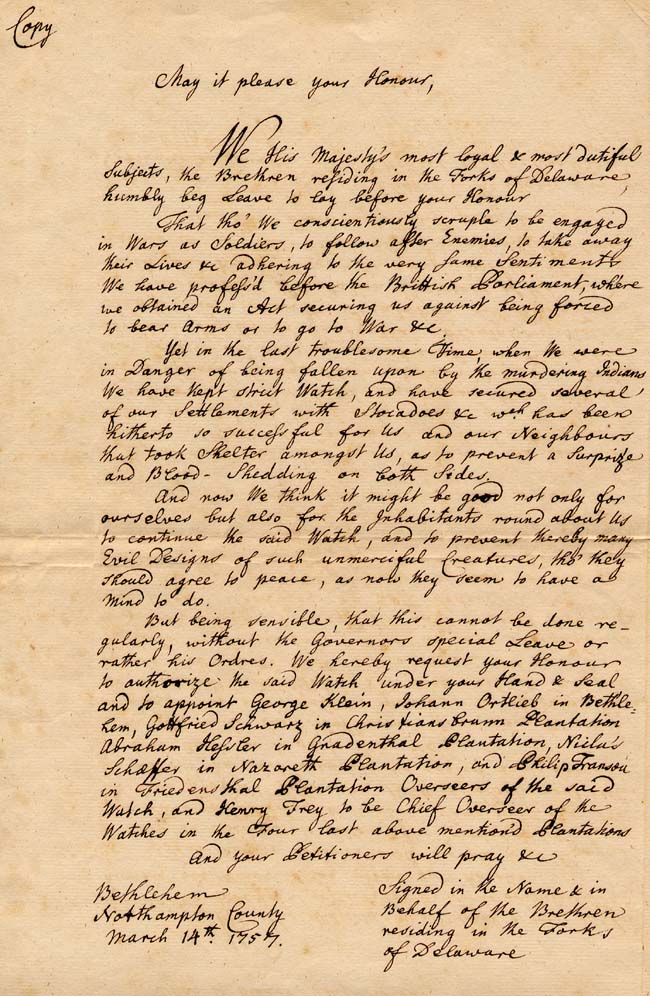 Copy
May it please your Honour,
We His Majesty's most loyal & most dutiful
Subjects, the Brethren residing in the Forks of Delaware,
humbly beg Leave to lay before your Honour
That tho' We conscientiously scruple to be engaged
in Wars as Soldiers, to follow after Enemies, to take away
their Lives &c adhering to the very same Sentiments
We have profess'd before the Brittish Parliament, where
we obtained an Act securing us against being forced
to bear Arms or to go to War &c.
Yet in the last troublesome Time, when We were
in Danger of being fallen upon by the murdering Indians
We have kept strict Watch, and have secured several
of our Settlements with Stocadoes &c wch has been
hitherto so successful for Us and our Neighbours
that took Shelter amongst Us, as to prevent a Surprize
and Blood-Shedding on both Sides.
And now We think it might be good not only for
ourselves but also for the Inhabitants round about Us
to continue the said Watch, and to prevent thereby many
Evil Designs of such unmerciful Creatures, tho' they
should agree to peace, as now they seem to have a
mind to do.
But being sensible, that this cannot be done re-
gularly, without the Governors special Leave or
rather his Ordres. We hereby request your Honour
to authorize the said Watch under your Hand & Seal
and to appoint George Klein, Johann Ortlieb in Bethle-
hem, Gottfried Schwarz in Christiansbrunn Plantation
Abraham Hessler in Gnadenthal Plantation, Niclas
Schæffer in Nazareth Plantation, and Philip Transou
in Friedensthal Plantation Overseers of the said
Watch, and Henry Frey to be Chief Overseer of the
Watches in the Four last above mention'd Plantations
And your Petitioners will pray &c
Bethlehem
Northampton County
March 14th. 1757.
Signed in the Name & in
Behalf of the Brethren
residing in the Forks
of Delaware